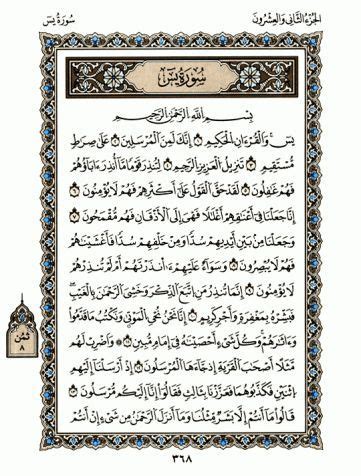 الجزء الثاني والعشرون
سورة يس
سورة يس
بسم الله الرحمن الرحيم
يس ۝ والقرءان الحكيم ۝ إنك لمن المرسلين ۝ على صراط
مستقيم ۝ تنزيل العزيز الرحيم ۝ لتنذر قوما ما أنذر ءاباؤهم
فهم غافلون ۝ لقد حق القول على أكثرهم فهم لا يؤمنون ۝
إنا جعلنا في أعناقهم أغلالا فهي إلى الأذقان فهم مقمحون ۝
وجعلنا من بين أيديهم سدا ومن خلفهم سدا فأغشيناهم
فهم لا يبصرون ۝ وسواء عليهم ءانذرتهم أم لم تنذرهم
لا يؤمنون ۝ إنما تنذر من اتبع الذكر وخشي الرحمن بالغيب
فبشره بمغفرة وأجر كريم ۝ إنا نحن نحي الموتى ونكتب ما قدموا
وءاثارهم وكل شيء احصيناه في إمام مبين ۝ واضرب لهم
مثلا أصحاب القرية إذ جاءها المرسلون ۝ إذ أرسلنا إليهم
اثنين فكذبوهما فعززنا بثالث فقالوا إنا إليكم مرسلون ۝
قالوا ما أنتم إلا بشر مثلنا وما أنزل الرحمن من شيء إن أنتم
ثمن
٨
٣٦٨